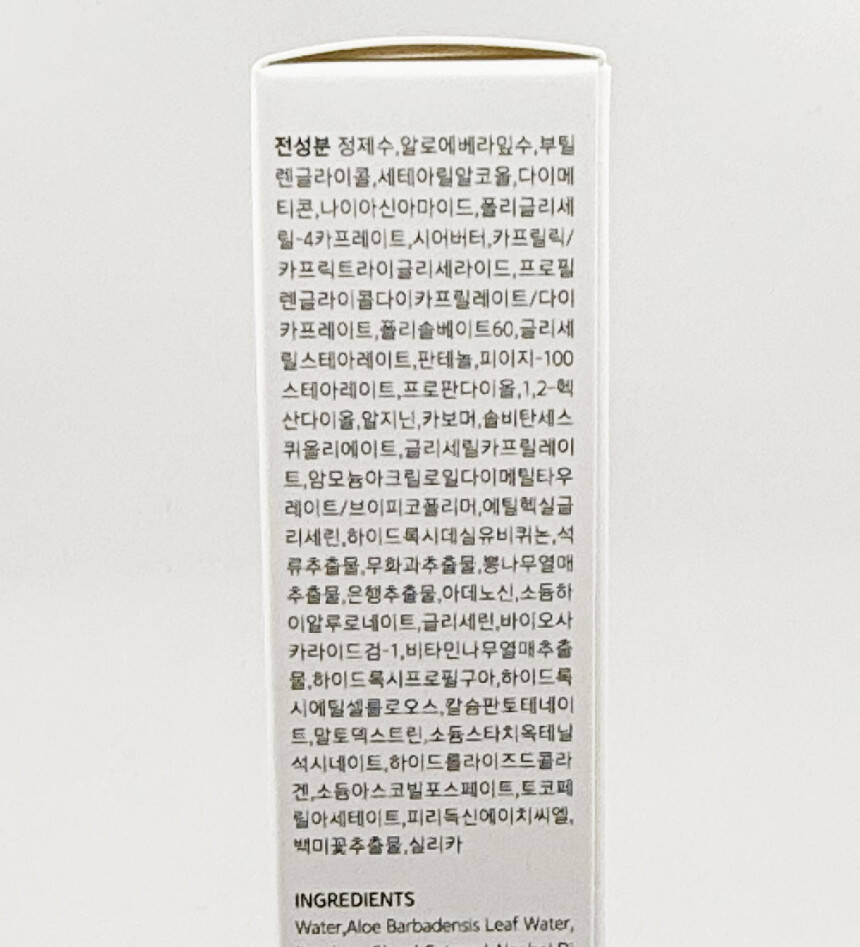 전성분 정제수,알로에베라잎수,부틸
렌글라이콜,세테아릴알코올,다이메
티콘,나이아신아마이드,폴리글리세
릴-4카프레이트,시어버터,카프릴릭/
카프릭트라이글리세라이드,프로필
렌글라이콜다이카프릴레이트/다이
카프레이트,폴리솔베이트60,글리세
릴스테아레이트,판테놀,피이지-100
스테아레이트,프로판다이올,1,2-헥
산다이올,알지닌,카보머,솔비탄세스
퀴올리에이트,글리세릴카프릴레이
트,암모늄아크릴로일다이메틸타우
레이트/브이피코폴리머,에틸헥실글
리세린,하이드록시데실유비퀴논,석
류추출물,무화과추출물,뽕나무열매
추출물,은행추출물,아데노신,소듐하
이알루로네이트,글리세린,바이오사
카라이드검-1,비타민나무열매추출
물,하이드록시프로필구아,하이드록
시에틸셀룰로오스,칼슘판토테네이
트,말토덱스트린,소듐스타치옥테닐
석시네이트,하이드롤라이즈드콜라
겐,소듐아스코빌포스페이트,토코페
릴아세테이트,피리독신에이치씨엘,
백미꽃추출물,실리카
INGREDIENTS
Water,Aloe Barbadensis Leaf Water,